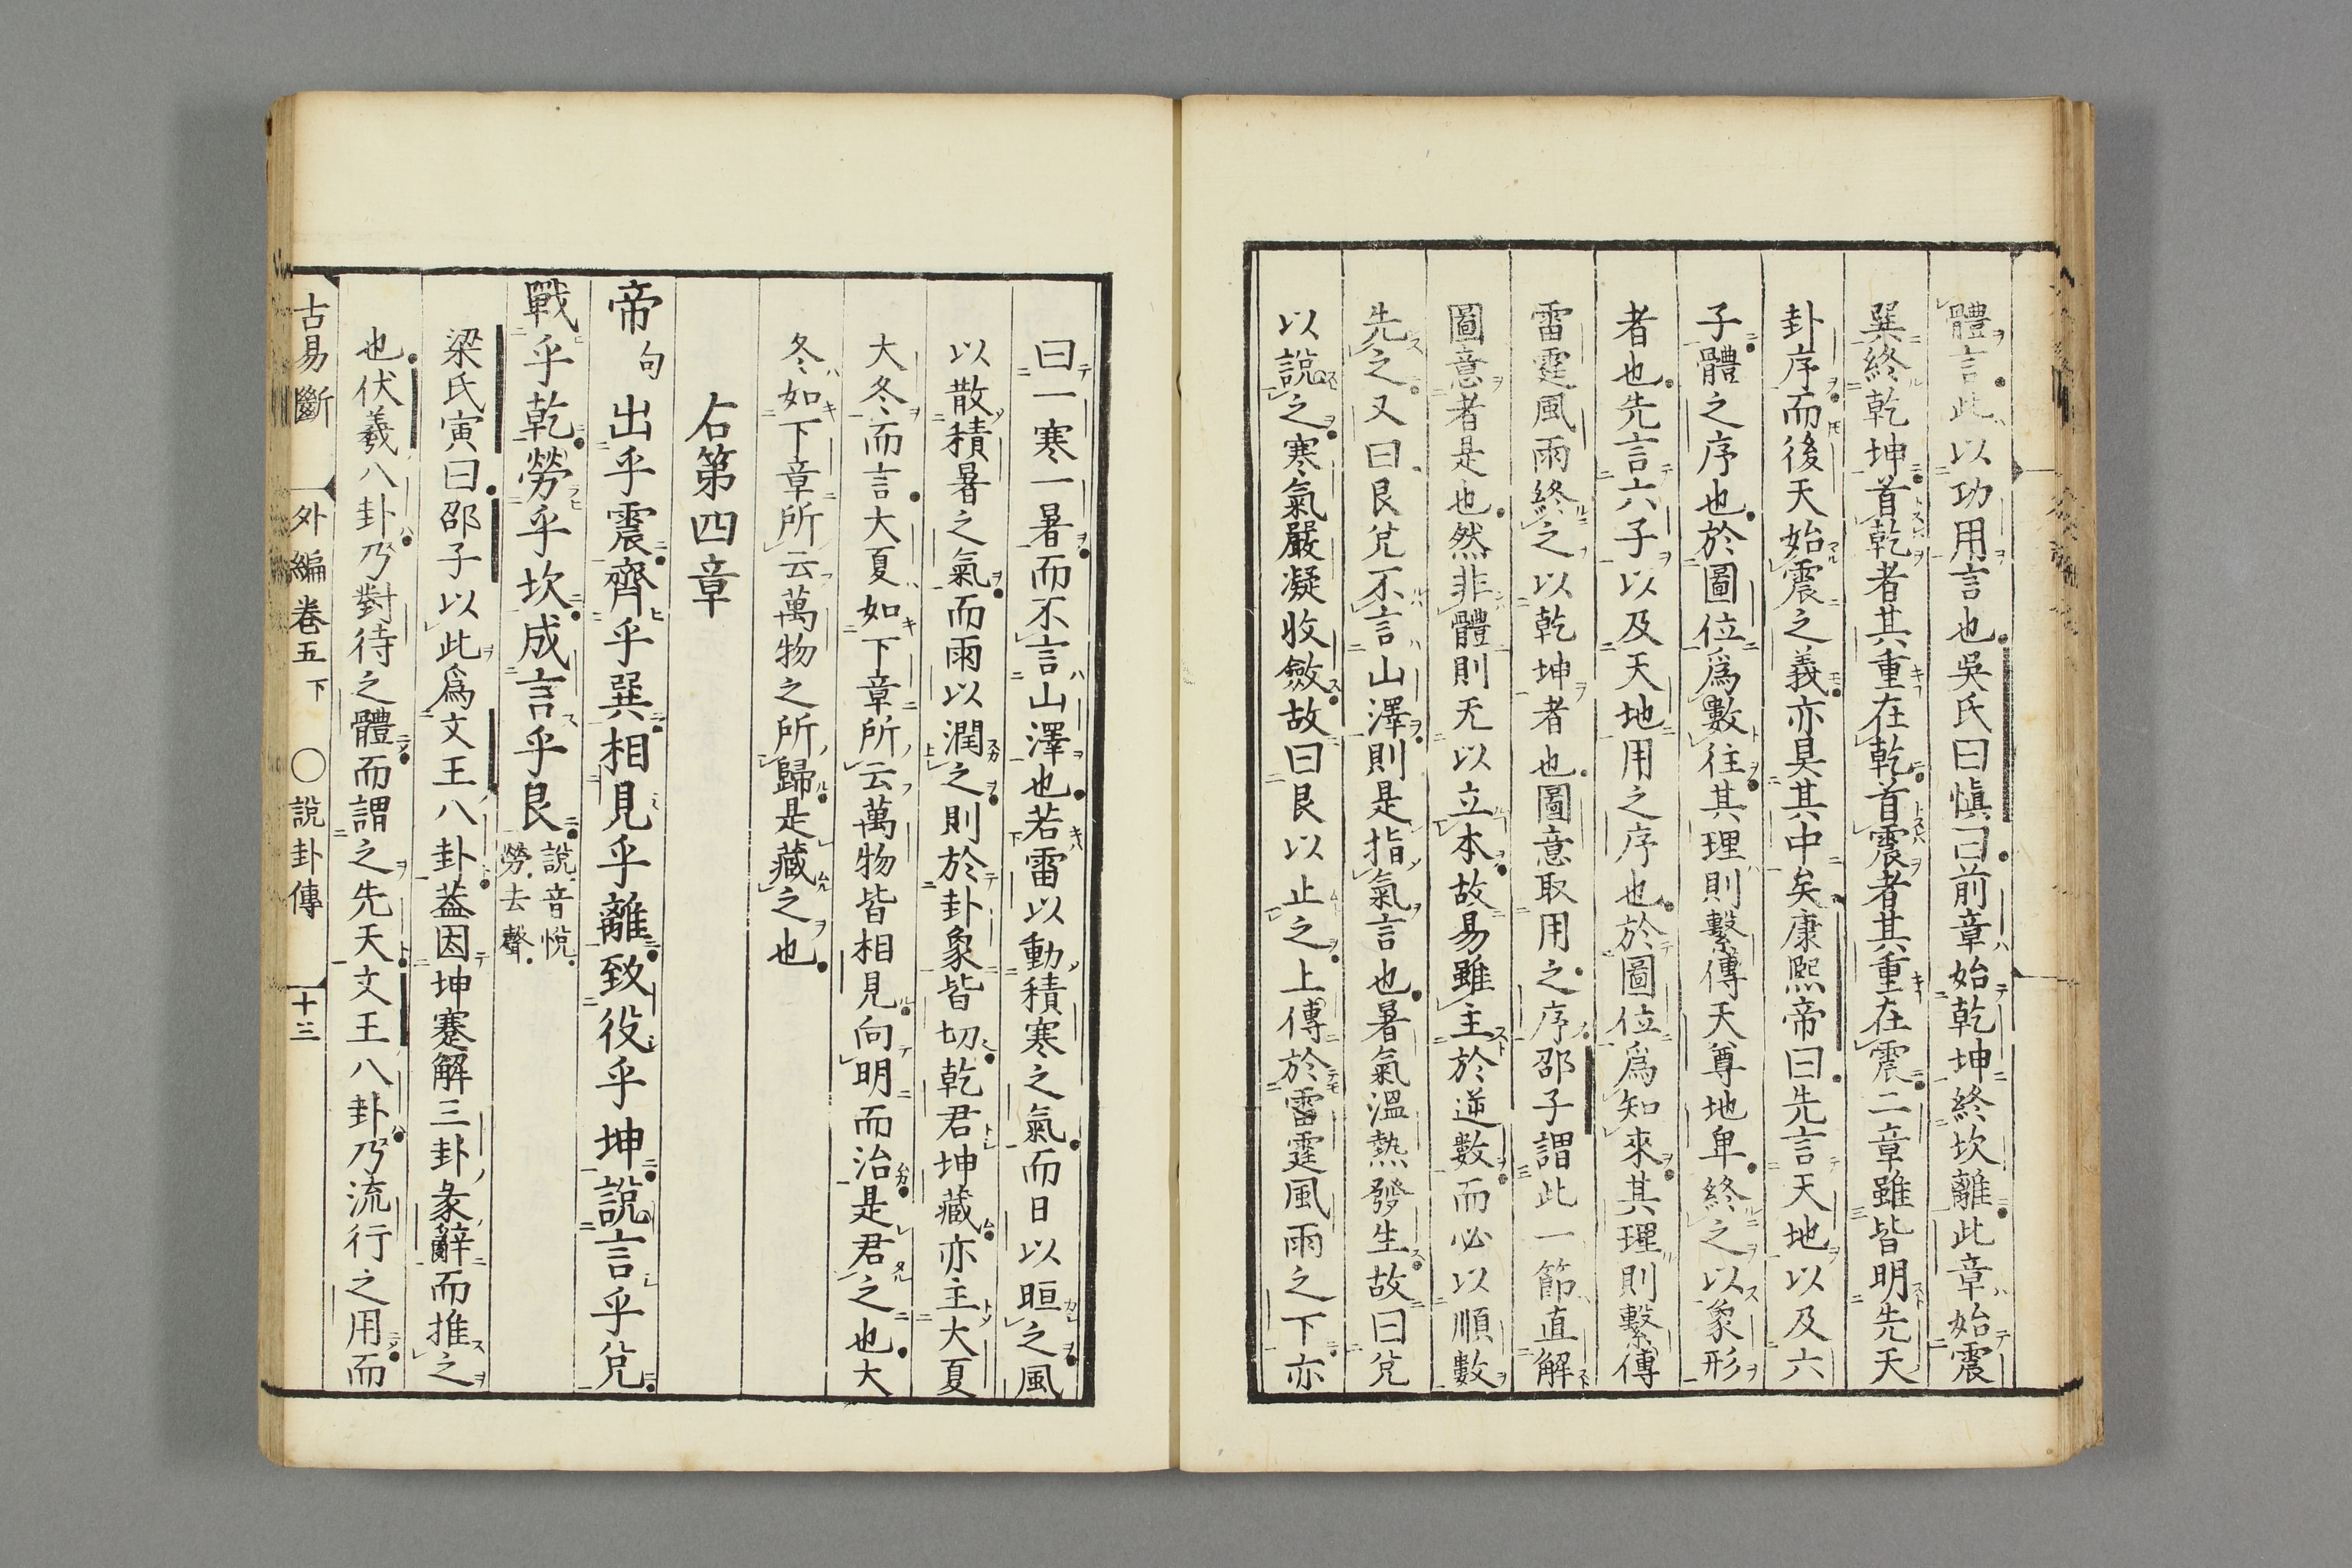 體言此以功用言也吳氏曰愼曰前章始乾坤終坎離此章始震
巽終乾坤首乾者其重在乾首震者其重在震二章雖皆明先天
卦序而後天始震之義亦具其中矣康熙帝曰先言天地以及六
子體之序也於圖位爲數往其理則繫傳天尊地卑終之以象形
者也先言六子以及天地用之序也於圖位爲知來其理則繫傳
雷霆風雨終之以乾坤者也圖意取用之序邵子謂此一節直解
圖意者是也然非體則无以立本故易雖主於逆數而必以順數
先之又曰艮兌不言山澤則是指氣言也暑氣溫熱發生故曰兌
以說之寒氣嚴凝收斂故曰艮以止之上傳於雷霆風雨之下亦
曰一寒一暑而不言山澤也若雷以動積寒之氣而日以晅之風
以散積暑之氣而雨以潤之則於卦象皆切乾君坤藏亦主大夏
大冬而言大夏如下章所云萬物皆相見向明而治是君之也大
冬如下章所云萬物之所歸是藏之也
右第四章
帝句出乎震齊乎巽相見乎離致役乎坤說言乎兌
戰乎乾勞乎坎成言乎艮說音悅勞去聲
梁氏寅曰邵子以此爲文王八卦葢因坤蹇解三卦彖辭而推之
也伏羲八卦乃對待之體而謂之先天文王八卦乃流行之用而
古易斷 外編卷五下 ○說卦傳 十三